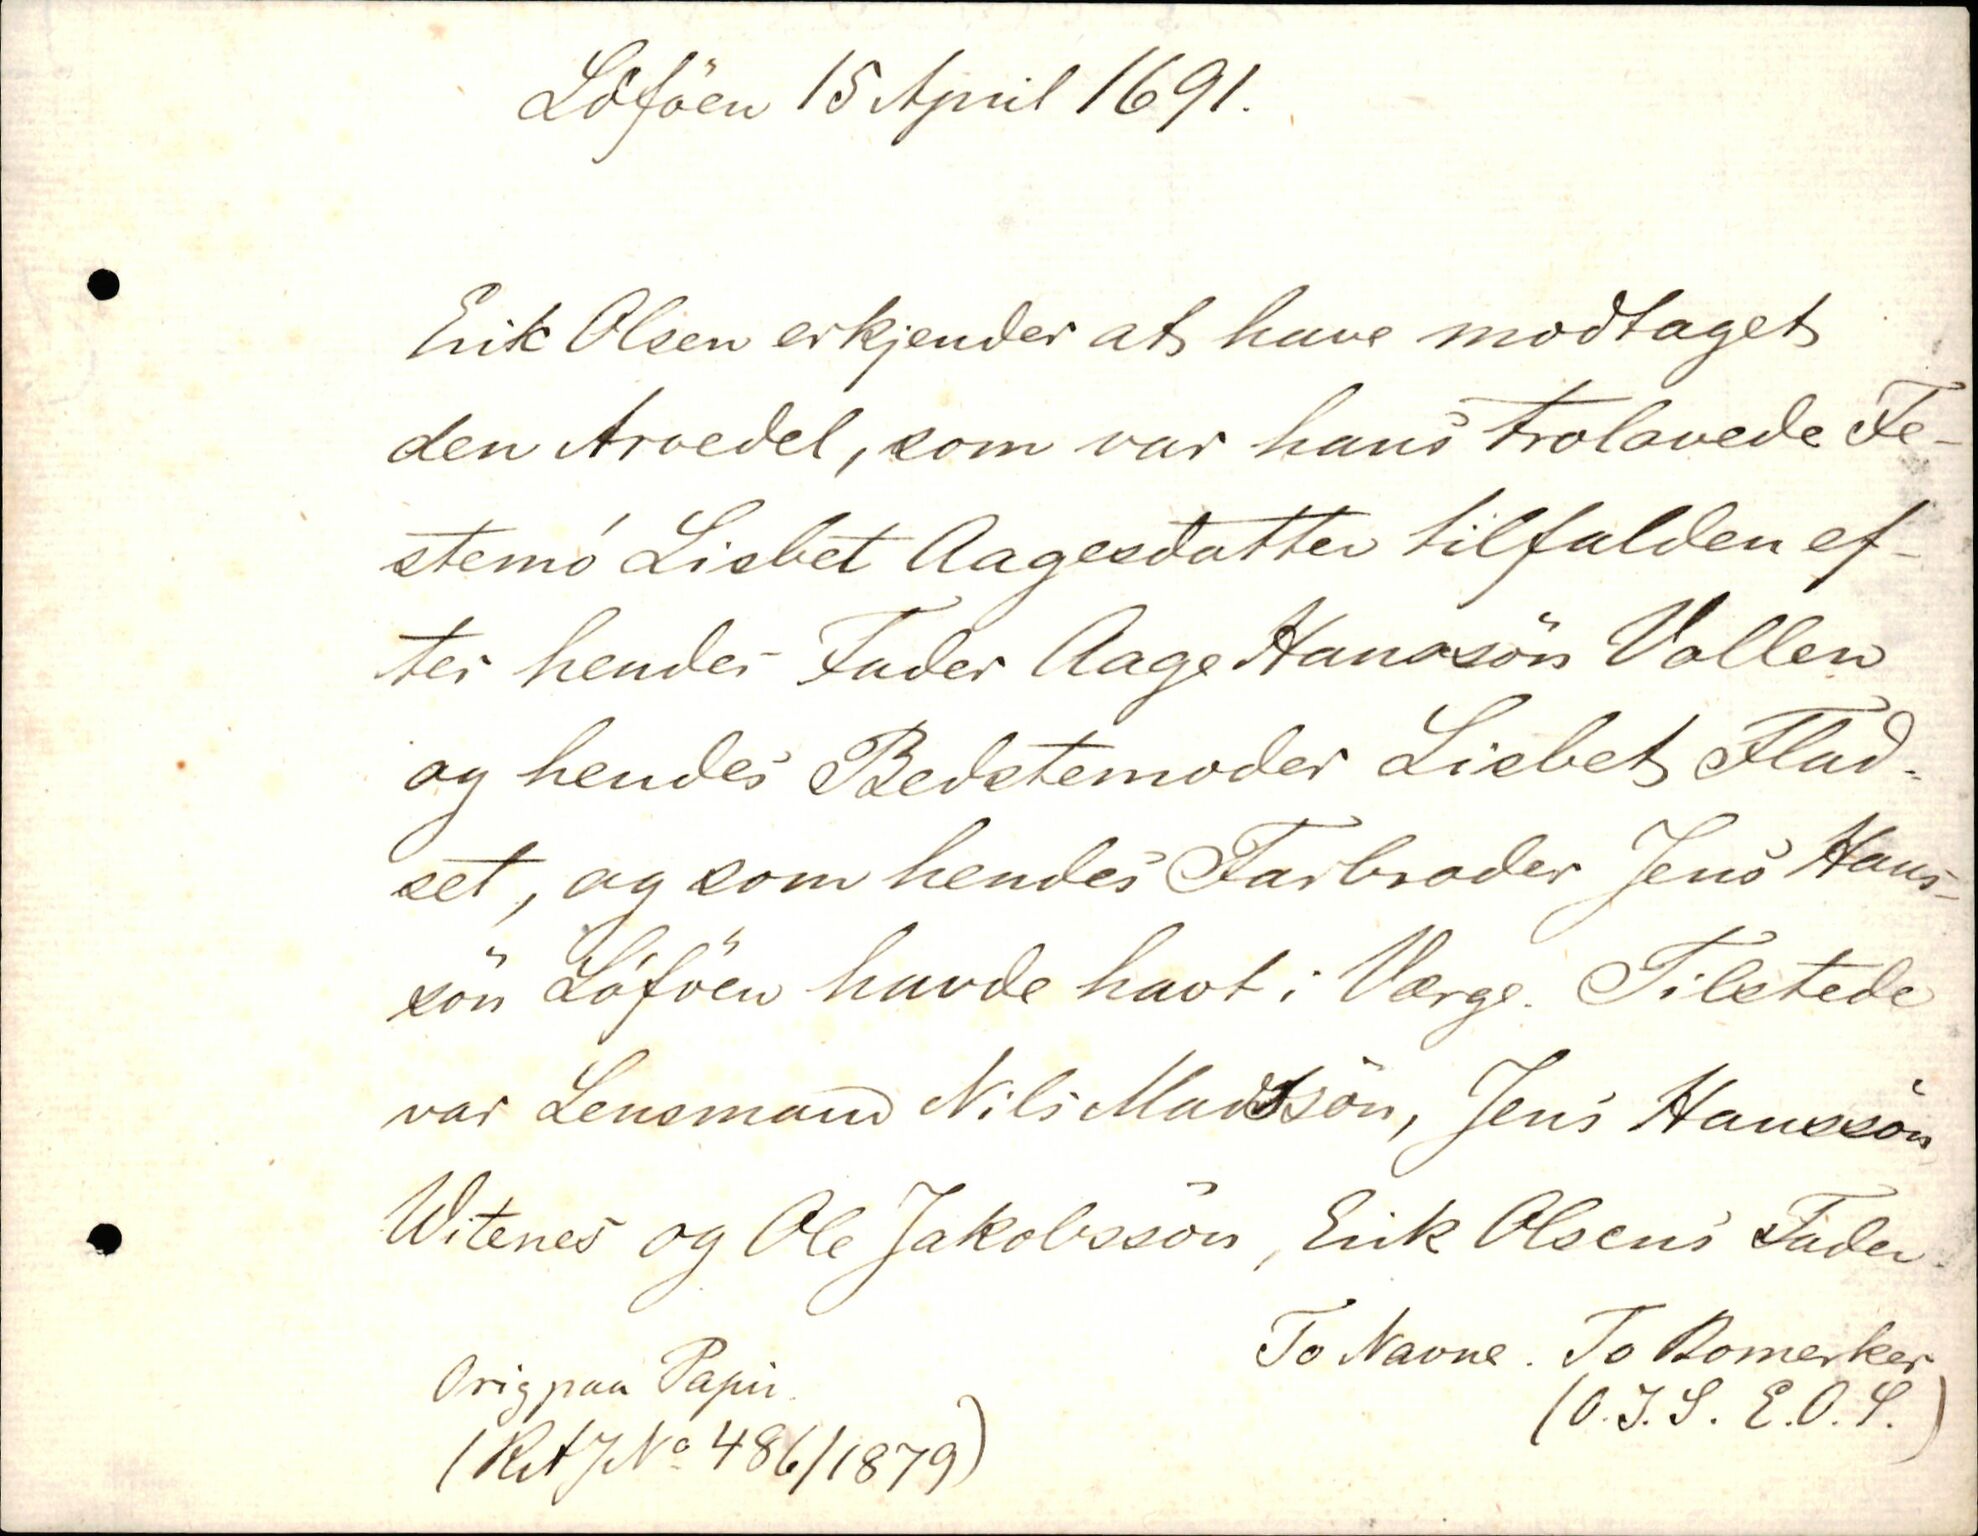 Löföen 15 April 1691.
Erik Olsen erkjender at have modtaget
den Arvedel, som var hans trolovede Fe-
stemö Lisbet Aagesdatter tilfalden ef-
ter hendes Fader Aage Hanssön Vollen
og hendes Bedstemoder Lisbet Flad-
set, og som hendes Farbroder Jens Hans-
sön Löföen havde havt i Værge. Tilstede
var Lensmand Nils Madssön, Jens Hanssön
Witenes og Ole Jakobssön, Erik Olsens Fader.
To Navne. To Bomerker
(O.J.S. E.O.S.)
Orig paa Papir.
(RA J No 486/1879)